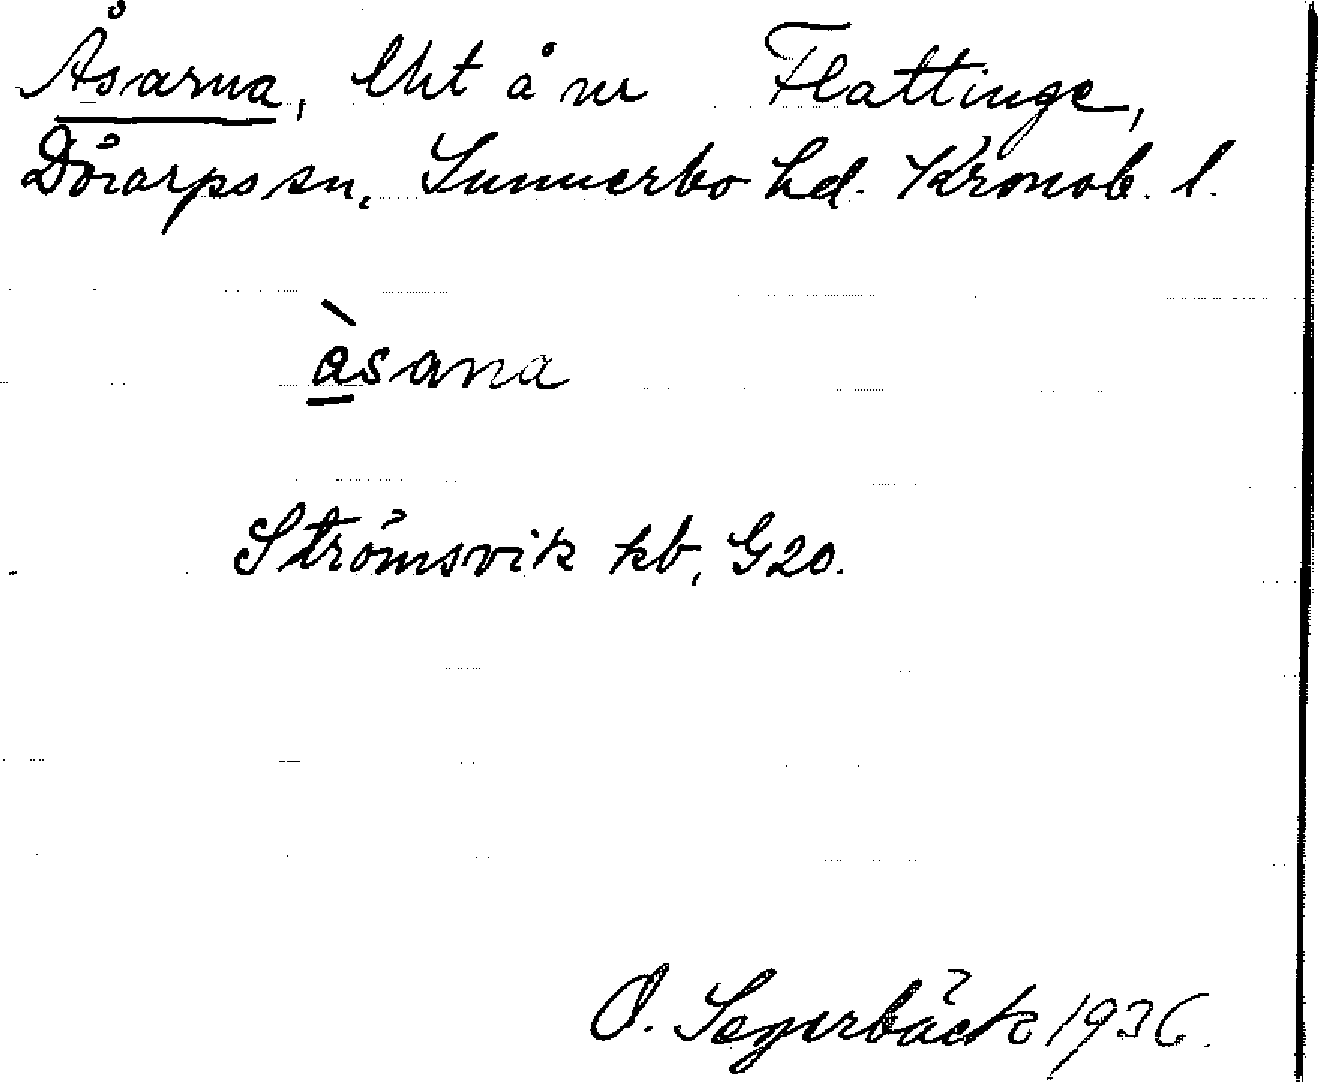 Åsarna, Ukt å nr Flattinge,
Dörarps sn, Sunnerbo hd. Kronob. l.
àsana
Strömsvik kb, G20.
O. Segerbäck 1936.